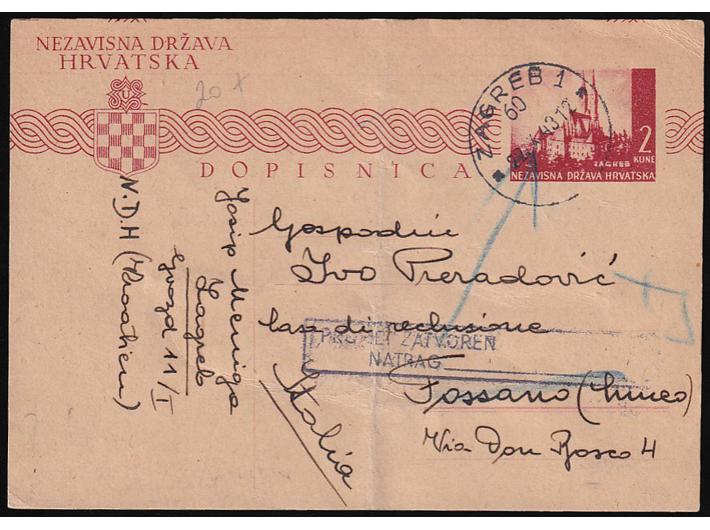 NEZAVISNA DRŽAVA
HRVATSKA
20 x
ZAGREB 1
60
X.43.12
2
KUNE
ZAGREB
NEZAVISNA DRŽAVA HRVATSKA
DOPISNICA
Gospodin
Ivo Preradović
casa di reclusione
PROMET ZATVOREN
NATRAG
Fossano (Cuneo)
Via Don Bosco 4
Italia
Josip Meniga
Zagreb
Gvozd 11/I
N.D.H (Kroatien)